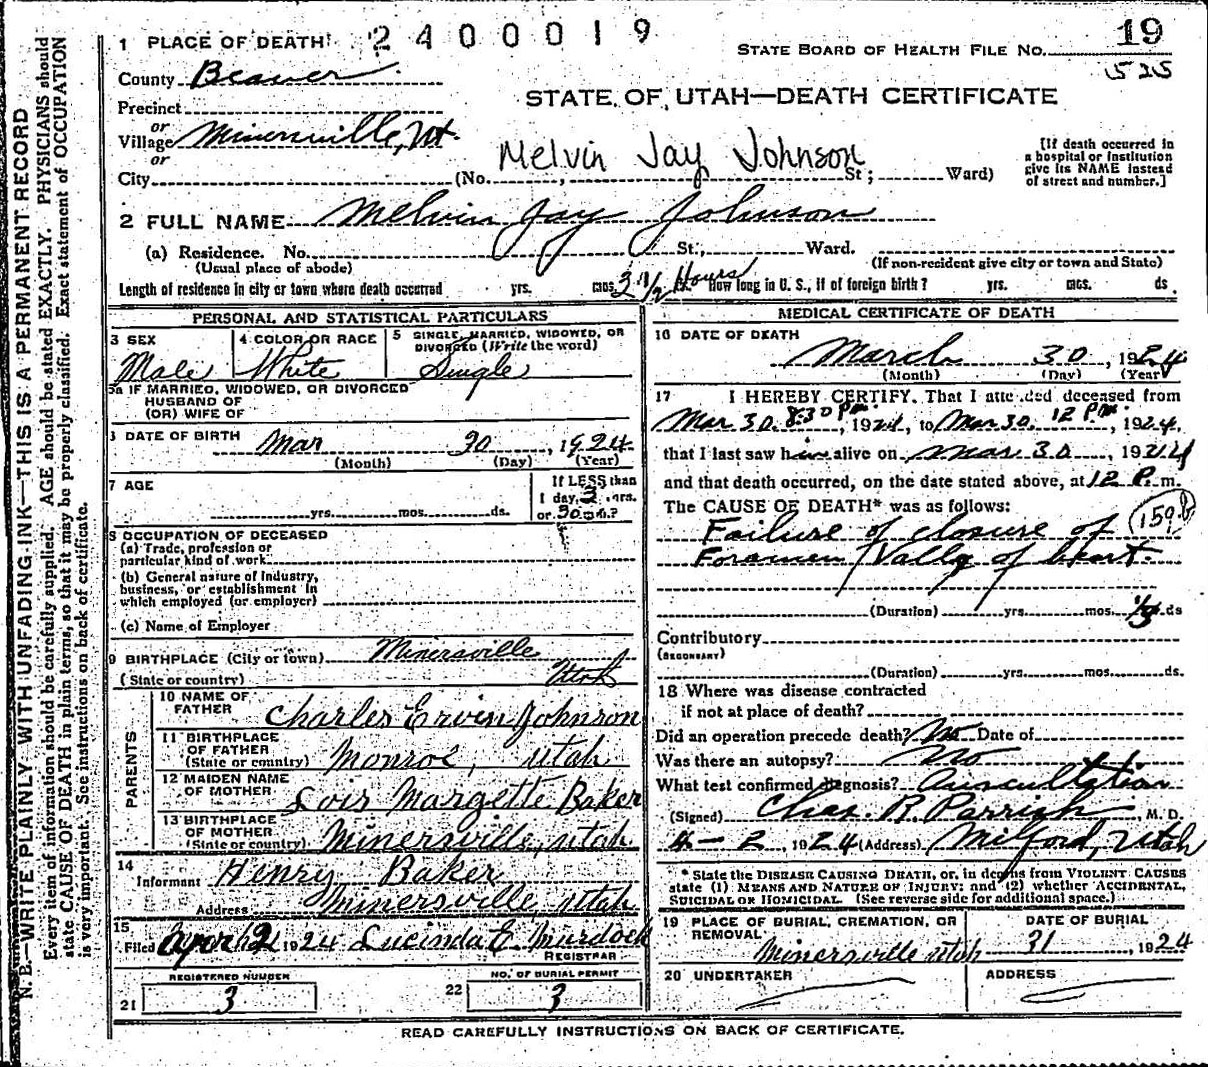 N. B.—WRITE PLAINLY WITH UNFADING INK—THIS IS A PERMANENT RECORD
Every item of information should be carefully supplied. AGE should be stated EXACTLY. PHYSICIANS should
state CAUSE OF DEATH in plain terms, so that it may be properly classified. Exact statement of OCCUPATION
is very important. See instructions on back of certificate.
1 PLACE OF DEATH 2400019
STATE BOARD OF HEALTH FILE NO. 19
525
County Beaver
STATE OF UTAH—DEATH CERTIFICATE
Precinct
or
Village Minersville, Ut.
or
City (No. Melvin Jay Johnson St; Ward)
[If death occurred in
a hospital or institution
give its NAME instead
of street and number.]
2 FULL NAME Melvin Jay Johnson
(a) Residence. No. St., Ward.
(Usual place of abode) (If non-resident give city or town and State)
Length of residence in city or town where death occurred yrs. mos. 3 1/2 Hours How long in U. S., if of foreign birth? yrs. mos. ds.
PERSONAL AND STATISTICAL PARTICULARS
3 SEX Male
4 COLOR OR RACE White
5 SINGLE, MARRIED, WIDOWED, OR
DIVORCED (Write the word)
Single
5a IF MARRIED, WIDOWED, OR DIVORCED
HUSBAND OF
(OR) WIFE OF
6 DATE OF BIRTH Mar 30, 1924
(Month) (Day) (Year)
7 AGE yrs. mos. ds.
If LESS than
1 day, 3 hrs.
or 30 min.?
8 OCCUPATION OF DECEASED
(a) Trade, profession or
particular kind of work
(b) General nature of Industry,
business, or establishment in
which employed (or employer)
(c) Name of Employer
9 BIRTHPLACE (City or town) Minersville
(State or country) Utah
PARENTS
10 NAME OF
FATHER Charles Ervin Johnson
11 BIRTHPLACE
OF FATHER
(State or country) Monroe, Utah
12 MAIDEN NAME
OF MOTHER Lois Margette Baker
13 BIRTHPLACE
OF MOTHER
(State or country) Minersville, Utah
14
Informant Henry Baker
Address Minersville, Utah
15
Filed April 2 1924 Lucinda E. Murdock
REGISTRAR
REGISTERED NUMBER
21 3
NO. OF BURIAL PERMIT
22 3
MEDICAL CERTIFICATE OF DEATH
16 DATE OF DEATH
March 30, 1924
(Month) (Day) (Year)
17 I HEREBY CERTIFY, That I attended deceased from
Mar 30. 8.30 P.m., 1924, to Mar 30. 12 P.m., 1924,
that I last saw him alive on Mar 30, 1924
and that death occurred, on the date stated above, at 12 P. m.
The CAUSE OF DEATH* was as follows:
Failure of closure of 159b
Foramen Valley of heart
(Duration) yrs. mos. ds
Contributory
(SECONDARY)
(Duration) yrs. mos. ds.
18 Where was disease contracted
if not at place of death?
Did an operation precede death? No Date of
Was there an autopsy? No
What test confirmed diagnosis? Auscultation
(Signed) Chas. R. Parrish, M. D.
4-2, 1924 (Address) Milford, Utah
* State the DISEASE CAUSING DEATH, or, in deaths from VIOLENT CAUSES
state (1) MEANS AND NATURE OF INJURY; and (2) whether ACCIDENTAL,
SUICIDAL OR HOMICIDAL. (See reverse side for additional space.)
19 PLACE OF BURIAL, CREMATION, OR
REMOVAL
Minersville Utah
DATE OF BURIAL
31, 1924
20 UNDERTAKER ADDRESS
READ CAREFULLY INSTRUCTIONS ON BACK OF CERTIFICATE.